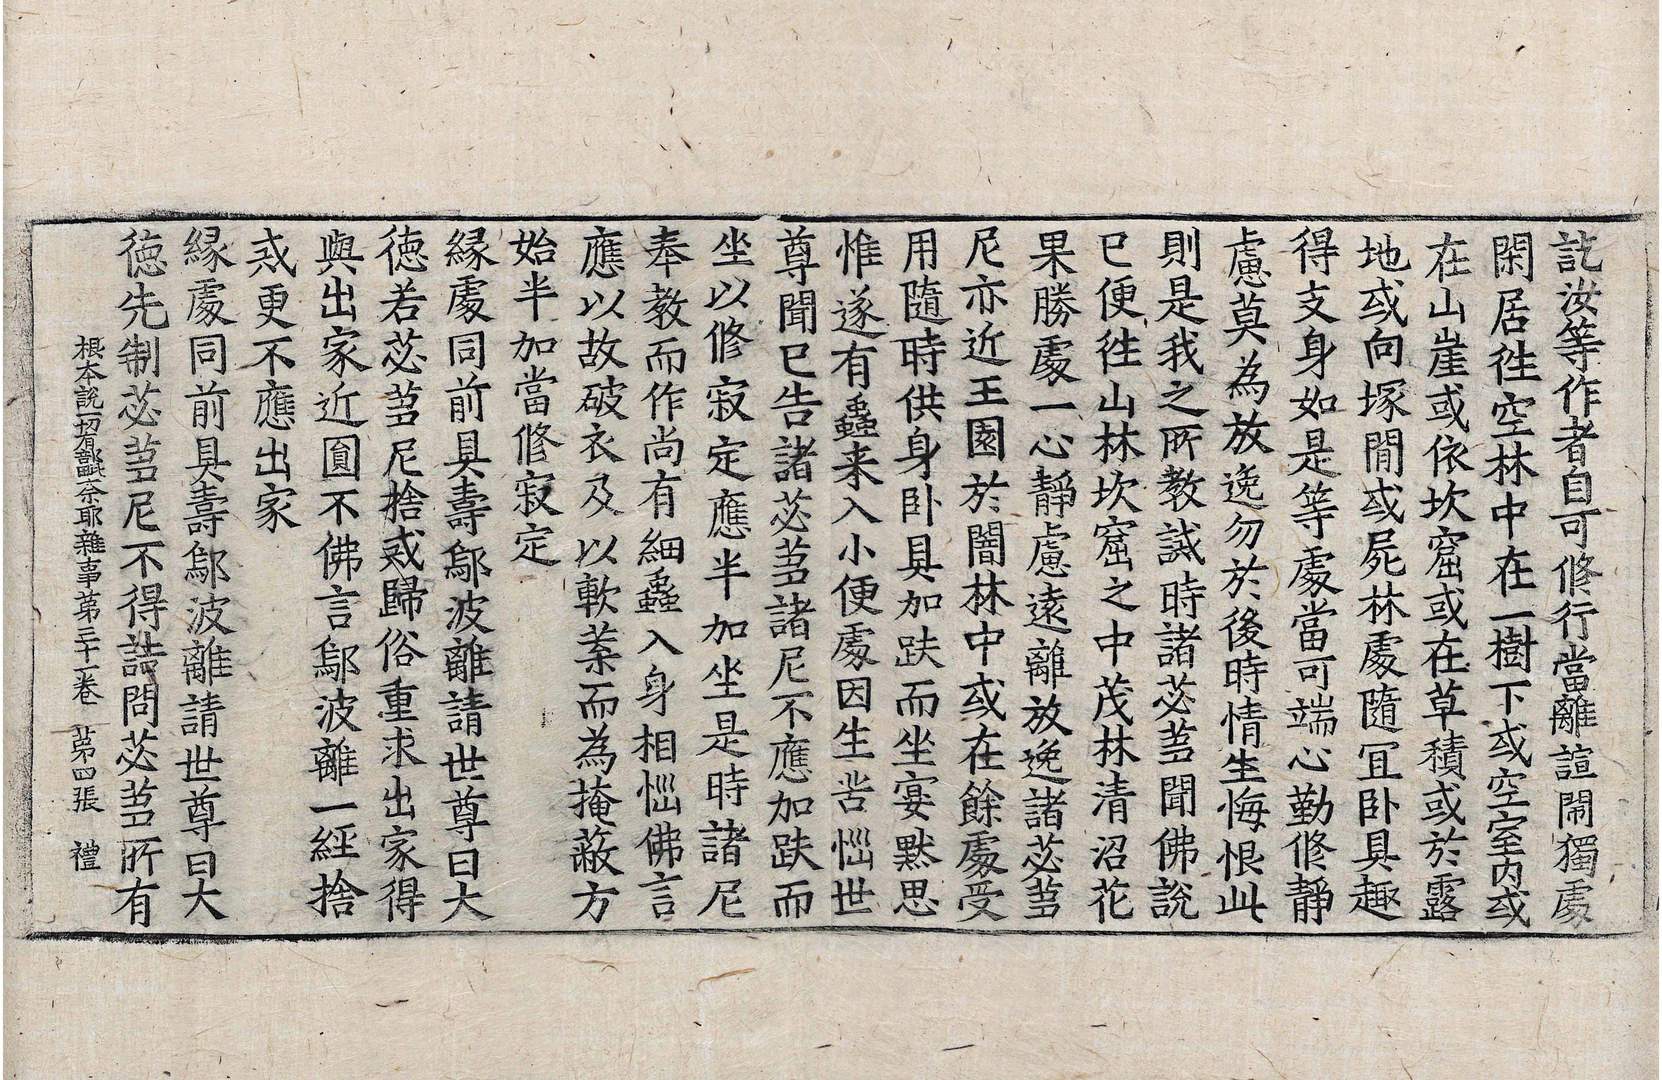 訖汝等作者自可修行當離諠閙獨處
閑居徃空林中在一樹下或空室內或
在山崖或依坎窟或在草積或於露
地或向塚閒或屍林處隨冝卧具趣
得支身如是等處當可端心勤修靜
慮莫為放逸勿於後時情生悔恨此
則是我之所教誡時諸苾蒭聞佛說
已便徃山林坎窟之中茂林清沼花
果勝處一心靜慮遠離放逸諸苾蒭
尼亦近王園於闇林中或在餘處受
用隨時供身卧具加趺而坐宴默思
惟遂有蟲来入小便處因生苦惱世
尊聞已告諸苾蒭諸尼不應加趺而
坐以修寂定應半加坐是時諸尼
奉教而作尚有細蟲入身相惱佛言
應以故破衣及以軟葉而為掩蔽方
始半加當修寂定
緣處同前具壽鄔波離請世尊曰大
徳若苾蒭尼捨戒歸俗重求出家得
與出家近圎不佛言鄔波離一經捨
戒更不應出家
緣處同前具壽鄔波離請世尊曰大
徳先制苾蒭尼不得詰問苾蒭所有
根本說一切有部毗奈耶雜事苐三十一卷　苐四張　禮